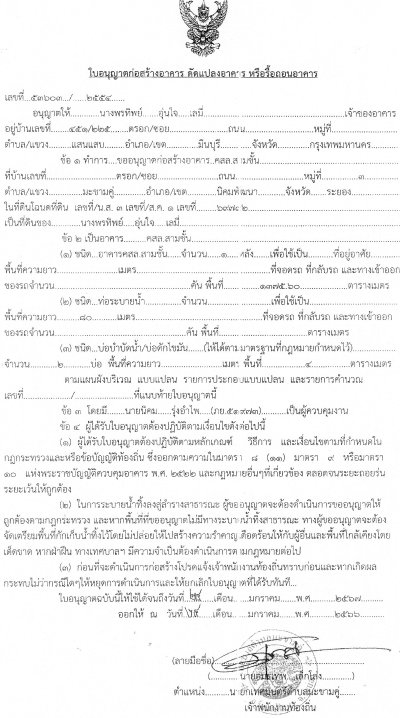 ใบอนุญาตก่อสร้างอาคาร ดัดแปลงอาคาร หรือรื้อถอนอาคาร
เลขที่...๕๓๖๐๓.../......๒๕๕๔......
อนุญาตให้............นางพรทิพย์......อุ่นใจ....เสมี่..........................เจ้าของอาคาร
อยู่บ้านเลขที่........๔๕๑/๒๒๕........ตรอก/ซอย....................ถนน....................หมู่ที่....................
ตำบล/แขวง.........แสนแสบ.......อำเภอ/เขต............มีนบุรี........จังหวัด.........กรุงเทพมหานคร.........
ข้อ ๑ ทำการ....ขออนุญาตก่อสร้างอาคาร..คสล.สามชั้น....................
ที่บ้านเลขที่....................ตรอก/ซอย....................ถนน....................หมู่ที่.........๓.........
ตำบล/แขวง.............มะขามคู่.........อำเภอ/เขต..........นิคมพัฒนา.........จังหวัด.......ระยอง.........
ในที่ดินโฉนดที่ดิน เลขที่/น.ส. ๓ เลขที่/ส.ค. ๑ เลขที่.........๖๙๙๘๒....................
เป็นที่ดินของ..........นางพรทิพย์.....อุ่นใจ....เสมี่....................
ข้อ ๒ เป็นอาคาร........คสล.สามชั้น....................
(๑) ชนิด...อาคารคสล.สามชั้น......จำนวน......๑....หลัง......เพื่อใช้เป็น.........ที่อยู่อาศัย.........
พื้นที่ความยาว....................เมตร....................ที่จอดรถ ที่กลับรถ และทางเข้าออก
ของรถจำนวน....................คัน พื้นที่............๑๓๗๕.๖๐....................ตารางเมตร
(๒) ชนิด...ท่อระบายน้ำ............จำนวน....................เพื่อใช้เป็น....................
พื้นที่ความยาว......๘๐.........เมตร....................ที่จอดรถ ที่กลับรถ และทางเข้าออก
ของรถจำนวน....................คัน พื้นที่....................ตารางเมตร
(๓) ชนิด...บ่อบำบัดน้ำ/บ่อดักไขมัน......(ให้ได้ตามมาตรฐานที่กฎหมายกำหนดไว้)............
จำนวน.........๒.........บ่อ พื้นที่ความยาว....................เมตร พื้นที่............๔............ตารางเมตร
ตามแผนผังบริเวณ แบบแปลน รายการประกอบแบบแปลน และรายการคำนวณ
เลขที่............/............ที่แนบท้ายใบอนุญาตนี้
ข้อ ๓ โดยมี........นายนิคม......รุ่งอำไพ....(ภย.๕๑๙๗๓)..........เป็นผู้ควบคุมงาน
ข้อ ๔ ผู้ได้รับใบอนุญาตต้องปฏิบัติตามเงื่อนไขดังต่อไปนี้
(๑) ผู้ได้รับใบอนุญาตต้องปฏิบัติตามหลักเกณฑ์ วิธีการ และเงื่อนไขตามที่กำหนดใน
กฎกระทรวงและหรือข้อบัญญัติท้องถิ่น ซึ่งออกตามความในมาตรา ๘ (๑๑) มาตรา ๙ หรือมาตรา
๑๐ แห่งพระราชบัญญัติควบคุมอาคาร พ.ศ. ๒๕๒๒ และกฎหมายอื่นๆที่เกี่ยวข้อง ตลอดจนระยะถอยร่น
ระยะเว้นให้ถูกต้อง
(๒) ในการระบายน้ำทิ้งลงสู่ลำรางสาธารณะ ผู้ขออนุญาตจะต้องดำเนินการขออนุญาตให้
ถูกต้องตามกฎกระทรวง และหากพื้นที่ที่ขออนุญาตไม่มีทางระบายน้ำทิ้งสาธารณะ ทางผู้ขออนุญาตจะต้อง
จัดเตรียมพื้นที่กักเก็บน้ำทิ้งไว้โดยไม่ปล่อยให้ไปสร้างความรำคาญ เดือดร้อนให้กับผู้อื่นและพื้นที่ใกล้เคียงโดย
เด็ดขาด หากฝ่าฝืน ทางเทศบาลฯ มีความจำเป็นต้องดำเนินการตามกฎหมายต่อไป
(๓) ก่อนที่จะดำเนินการก่อสร้างโปรดแจ้งเจ้าพนักงานท้องถิ่นทราบก่อนและหากเกิดผล
กระทบไม่ว่ากรณีใดๆให้หยุดการดำเนินการและให้ยกเลิกใบอนุญาตที่ได้รับทันที...
ใบอนุญาตฉบับนี้ให้ใช้ได้จนถึงวันที่......เดือน......มกราคม......พ.ศ.........๒๕๖๗.........
ออกให้ ณ วันที่......เดือน......มกราคม......พ.ศ.........๒๕๖๖.........
(ลายมือชื่อ)
ตำแหน่ง..........นายกเทศมนตรีตำบลมะขามคู่.......
เจ้าพนักงานท้องถิ่น